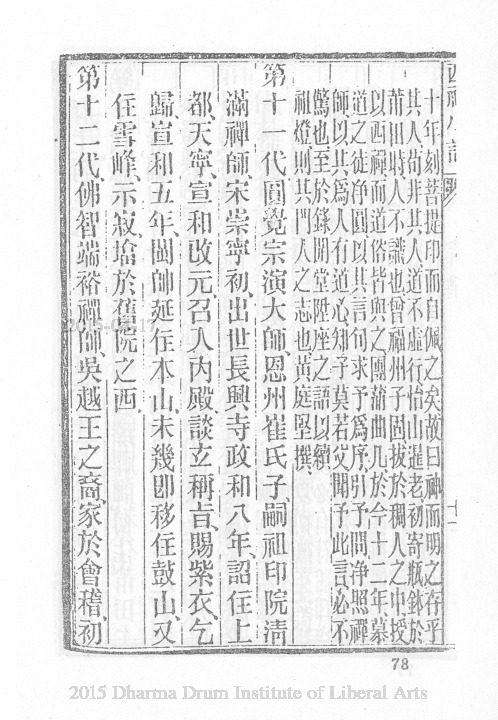 西禪小記
十年刻菩提印而自佩之矣故曰神而明之存乎
其人苟非其人道不虛行怡山暹老初寄瓶鉢於
莆田時人不識也曾福州子固拔於稠人之中授
以西禪而道俗皆與之團蒲曲几於今十二年慕
道之徒淨圓以其言句求予為序引予問淨照禪
師以其為人有道心知子莫若父聞予此言必不
驚也至於錄開堂陞座之語以續
祖燈則其門人之志也黃庭堅撰
第十一代圓覺宗演大師恩州崔氏子嗣祖印院清
滿禪師宋崇寧初出世長興寺政和八年詔住上
都天寧宣和改元召入內殿談玄稱旨賜紫衣乞
歸宣和五年閩帥延住本山未幾即移住鼓山又
住雪峰示寂塔於舊院之西
第十二代佛智端裕禪師吳越王之裔家於會稽初
78
2015 Dharma Drum Institute of Liberal Arts